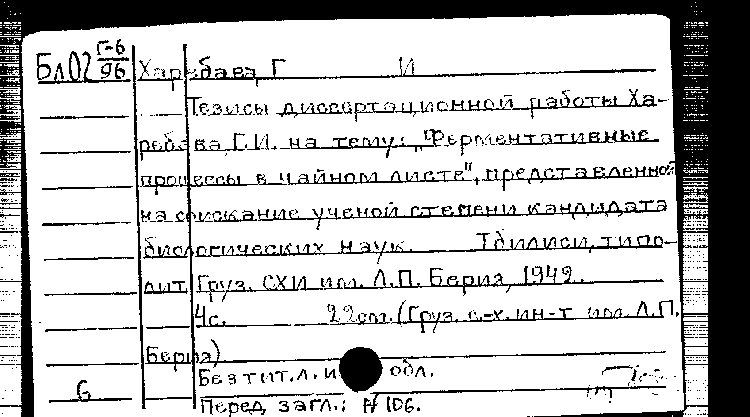 Бл02 Г-6/96 Харебава, Г И
Тезисы диссертационной работы Ха-
ребава, Г.И. на тему: "Ферментативные
процессы в чайном листе", представленной
на соискание ученой степени кандидата
биологических наук. Тбилиси, типо-
лит. Груз. СХИ им. Л.П. Берия, 1949.
4с. 22см. (Груз. с.-х. ин-т им. Л.П.
Берия)
Без тит. л. и обл.
6
Перед загл.: № 106.